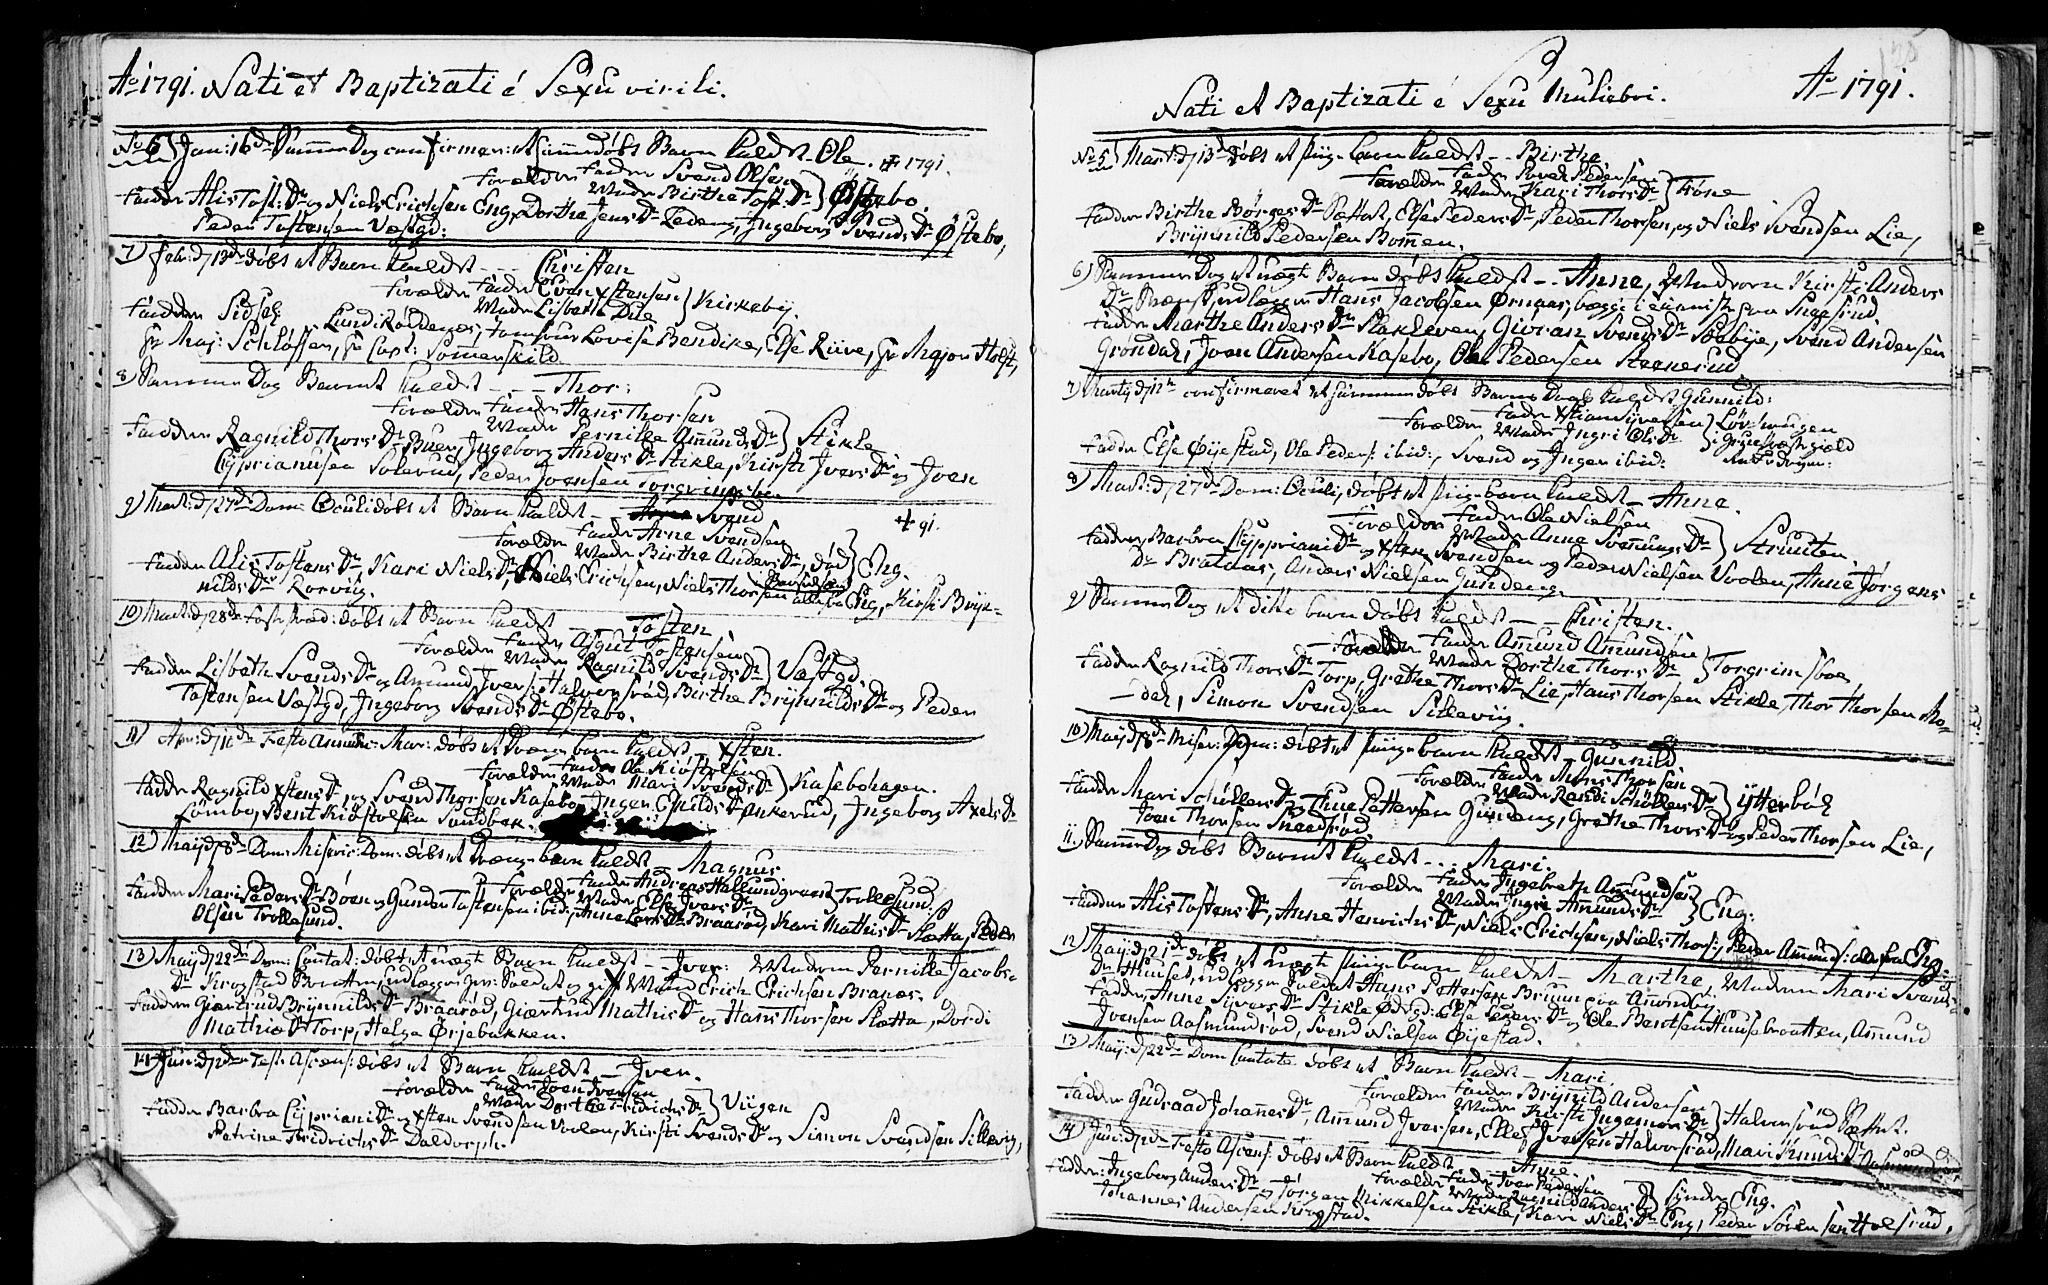 Ao 1791. Nati et Baptizati é Sexu virili.
No 6) Jan: 16de Samme Dag confirmeret hjemmedøbt Barn kaldet - Ole. † 1791.
Forældre Fader Svend Olsen
Moder Birthe Tost: Dr } Østebo.
Faddere Alis Tost: Dr og Niels Erichsen Eng, Dorthe Jens Dr Leden, Ingeborg Svends Dr Østebo,
Peder Tostensen Væstgd:
7) Febr: d 13de døbt et Barn kaldet - - Christen
Forældre Fader Even Xstensen
Moder Lisbeth Dile } Kirkebÿ.
Faddere Sidsel Lund Røddenæs, Jomfrue Lovise Bendike, Else Riive,
Fr Maj: Schlossen, Hr Capt: Somerskild
8) Samme Dag Barnet kaldet - - - Thor:
Forældre Fader Hans Thorsen
Moder Pernille Amunds Dr } Stikle
Faddere Ragnild Thors Dr Buer, Ingeborg Anders Dr Stikle, Kirsti Ivers Dr og Joen
Cÿprianusen Solerud, Peder Joensen
9) Mart: d 27de Dom: Oculi døbt et Barn kaldet - Svend † 91.
Forældre Fader Arne Svendsen
Moder Birthe Anders Dr, død } Eng.
Faddere Alis Tostens Dr, Kari Niels Dr Niels Erichsen, Niels Thorsen alle fra Eng, Kirsti Brÿn-
nilds Dr Rorviig.
10) Mart: d 28de døbt et Barn kaldet - Tosten
Forældre Fader Asgut Tostensen
Moder Ragnild Svends Dr } Væstgd.
Faddere Lisbeth Svends Dr og Amund Ivers: Halvorsrød, Birthe Brÿnnilds Dr og Peder
Tostensen Væstgd, Ingeborg Svends Dr Østebo.
11) Apr: d Festo Annunc: Mar: døbt et Drænge barn kaldet - Xsten.
Forældre Fader Ole Kiøstelsen
Moder Mari Svends Dr } Kasebohagen.
Faddere Ragnild Xstens Dr og Svend Thorsen Kasebo, Ingen Eskilds Dr Ankerud, Ingeborg Axels Dr
Lømbo, Bent Kiøstelsen Sundbek.
12) Maÿ d 8de Dom: Miseric: Dom: døbt et Drænge barn kaldet - Magnus
Forældre Fader Andreas Hallundgraest
Moder Else Ivers Dr } Trollesund.
Faddere Mari Peders Dr Bøen og Gunder Tostensen ibid:, Anne Lars Dr Braarød, Kari Mathis Dr Slætta, Peder
Olsen Trollesund.
13) Maÿ d 22de Dom: Cantat: døbt et uægt Barn kaldet - - Iver: Moderen Pernille Jacobs
Dr Krogstad Barnefader udlægger gev: Soldat og gift Mand Erich Erichsen Branæs.
Faddere Giærtrud Brÿnnilds Dr Braarød, Giærtrud Mathis Dr og Hans Thorsen Slætta, Dordi
Mathiæ Dr Torp, Helge Ørjebakken.
14) Jun: d 2den Fest: Ascens: døbt et Barn kaldet - Iver.
Forældre Fader Joen Iversen
Moder Dorthe Fridrichs Dr } Viigen
Faddere Barbra Cÿpriani Dr og Xsten Svendsen Voolen, Kirsti Svends Dr og Simon Svendsen Sillevig,
Petrine Fridrichs Dr Daldorph.
Nati et Baptizati é Sexu Muliebri. Ao 1791.
No 5) Mart: d 13de døbt et Piige barn kaldet - - Birthe
Forældre Fader Povel Pedersen
Moder Kari Thors Dr } Tøne
Faddere Birthe Børges Dr Sættet, Else Peders Dr, Peder Thorsen, og Niels Svendsen Lie,
Brÿnnild Pedersen Bommen.
6) Samme Dag et uægte Barn døbt kaldet - - Anne, Moderen Kirsti Anders
Dr Hans Jacobsen Ørnaas, begge i tieniste paa Sneesrud
Faddere Marthe Anders Dr Slakleven, Giøran Svends Dr Sæbÿe, Svend Andersen
Grøndal, Joen Andersen Kasebo, Ole Pedersen Steenesrud.
7) Martÿ d confirmeret et hjemmedøbt Barns Daab kaldet Gunnild:
Forældre Fader Xstian Sÿversen
Moder Ingri Ols Dr } Løvhougen
Faddere Else Øÿestad, Ole Peders: ibid:, Svend og Ingen ibid:
8) Mart: d 27de Dom: Oculi, døbt et Piige barn kaldet - Anne.
Forældre Fader Ole Nielsen
Moder Anne Svennungs Dr } Struten
Faddere Barbra Cÿpriani Dr og Xsten Svendsen og Peder Nielsen Voolen, Anne Jørgens
Dr Bradaas, Anders Nielsen Gundeng.
9) Samme Dag et dito barn døbt kaldet - - Christen.
Forældre Fader Amund Amundsen
Moder Dorthe Thors Dr } Torgrimsboe
Faddere Ragnild Thors Dr Torp, Grethe Thors Dr Lie, Hans Thorsen Stikle, Thor Thorsen Mo-
dal, Simon Svendsen Sillevÿg.
10) Maÿ d 8de Miser: Dom: døbt et Piige barn kaldet - Gunnild
Forældre Fader Arne Thorsen
Moder Randi Schøllers Dr } Ÿtterbøl
Faddere Mari Schøllers Dr og Thue Pettersen Gundeng, Grethe Thors Dr og Peder Thorsen Lie,
Joen Thorsen Sneesrød.
11. Samme Dag døbt Barnet kaldet - - - Mari.
Forældre Fader Ingebreth Amundsen
Moder Inger Amunds Dr } Eng:
Faddere Alis Tostens Dr, Anne Henrichs Dr Niels Erichsen, Niels Thors:, Peder Amunds: alle fra Eng.
12) Maÿ d 21de døbt et uægt Piige barn kaldet - Marthe, Moderen Mari Svends-
Dr Huuset, udlægger Soldat Hans Pettersen Bruun
Faddere, Anne Sÿvers Dr Stikle Ødegd: Else Peders Dr og Ole Bentsen Huusebraatten, Amund
Joensen Aasmundrød, Svend Nielsen Øÿestad.
13) Maÿ: d 22de Dom Cantate døbt et Barn kaldet - Mari.
Forældre Fader Brÿnild Andersen
Moder Kirsti Ingemor Dr } Halvorsrød Sættet.
Faddere Gudraad Johannes Dr, Amund Iversen, Ellef Iversen Halvorsrød, Mari Knuds Dr Aasmundrød
14) Junÿ d 2de Festo Ascens: døbt et Barn kaldet - - Anne.
Forældre Fader Iver Pedersen
Moder Ragnild Anders Dr } Syndre Eng.
Faddere: Ingeborg Anders Dr og Jørgen Mikkelsen Stikle, Kari Niels Dr Eng, Peder Sørensen Holsrud,
Johannes Andersen Krogstad.